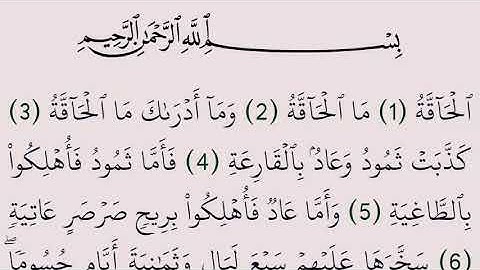 بِسْمِ ٱللَّهِ ٱلرَّحْمَٰنِ ٱلرَّحِيمِ
ٱلْحَآقَّةُ (1) مَا ٱلْحَآقَّةُ (2) وَمَآ أَدْرَىٰكَ مَا ٱلْحَآقَّةُ (3)
كَذَّبَتْ ثَمُودُ وَعَادُۢ بِٱلْقَارِعَةِ (4) فَأَمَّا ثَمُودُ فَأُهْلِكُوا۟
بِٱلطَّاغِيَةِ (5) وَأَمَّا عَادٌ فَأُهْلِكُوا۟ بِرِيحٍ صَرْصَرٍ عَاتِيَةٍ
(6) سَخَّرَهَا عَلَيْهِمْ سَبْعَ لَيَالٍ وَثَمَٰنِيَةَ أَيَّامٍ حُسُومًاۖ